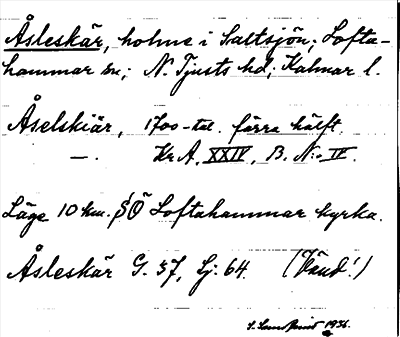 Åsleskär, holme i Saltsjön; Lofta-
hammar sn; N. Tjusts hd; Kalmar l.
Åselskiär, 1700-tal. förra hälft.
—. Kr. A. XXIV, B. N:o IV.
Läge 10 km. SÖ Loftahammar kyrka.
Åsleskär G. 37, Lj. 64. (Vänd!)
1936.